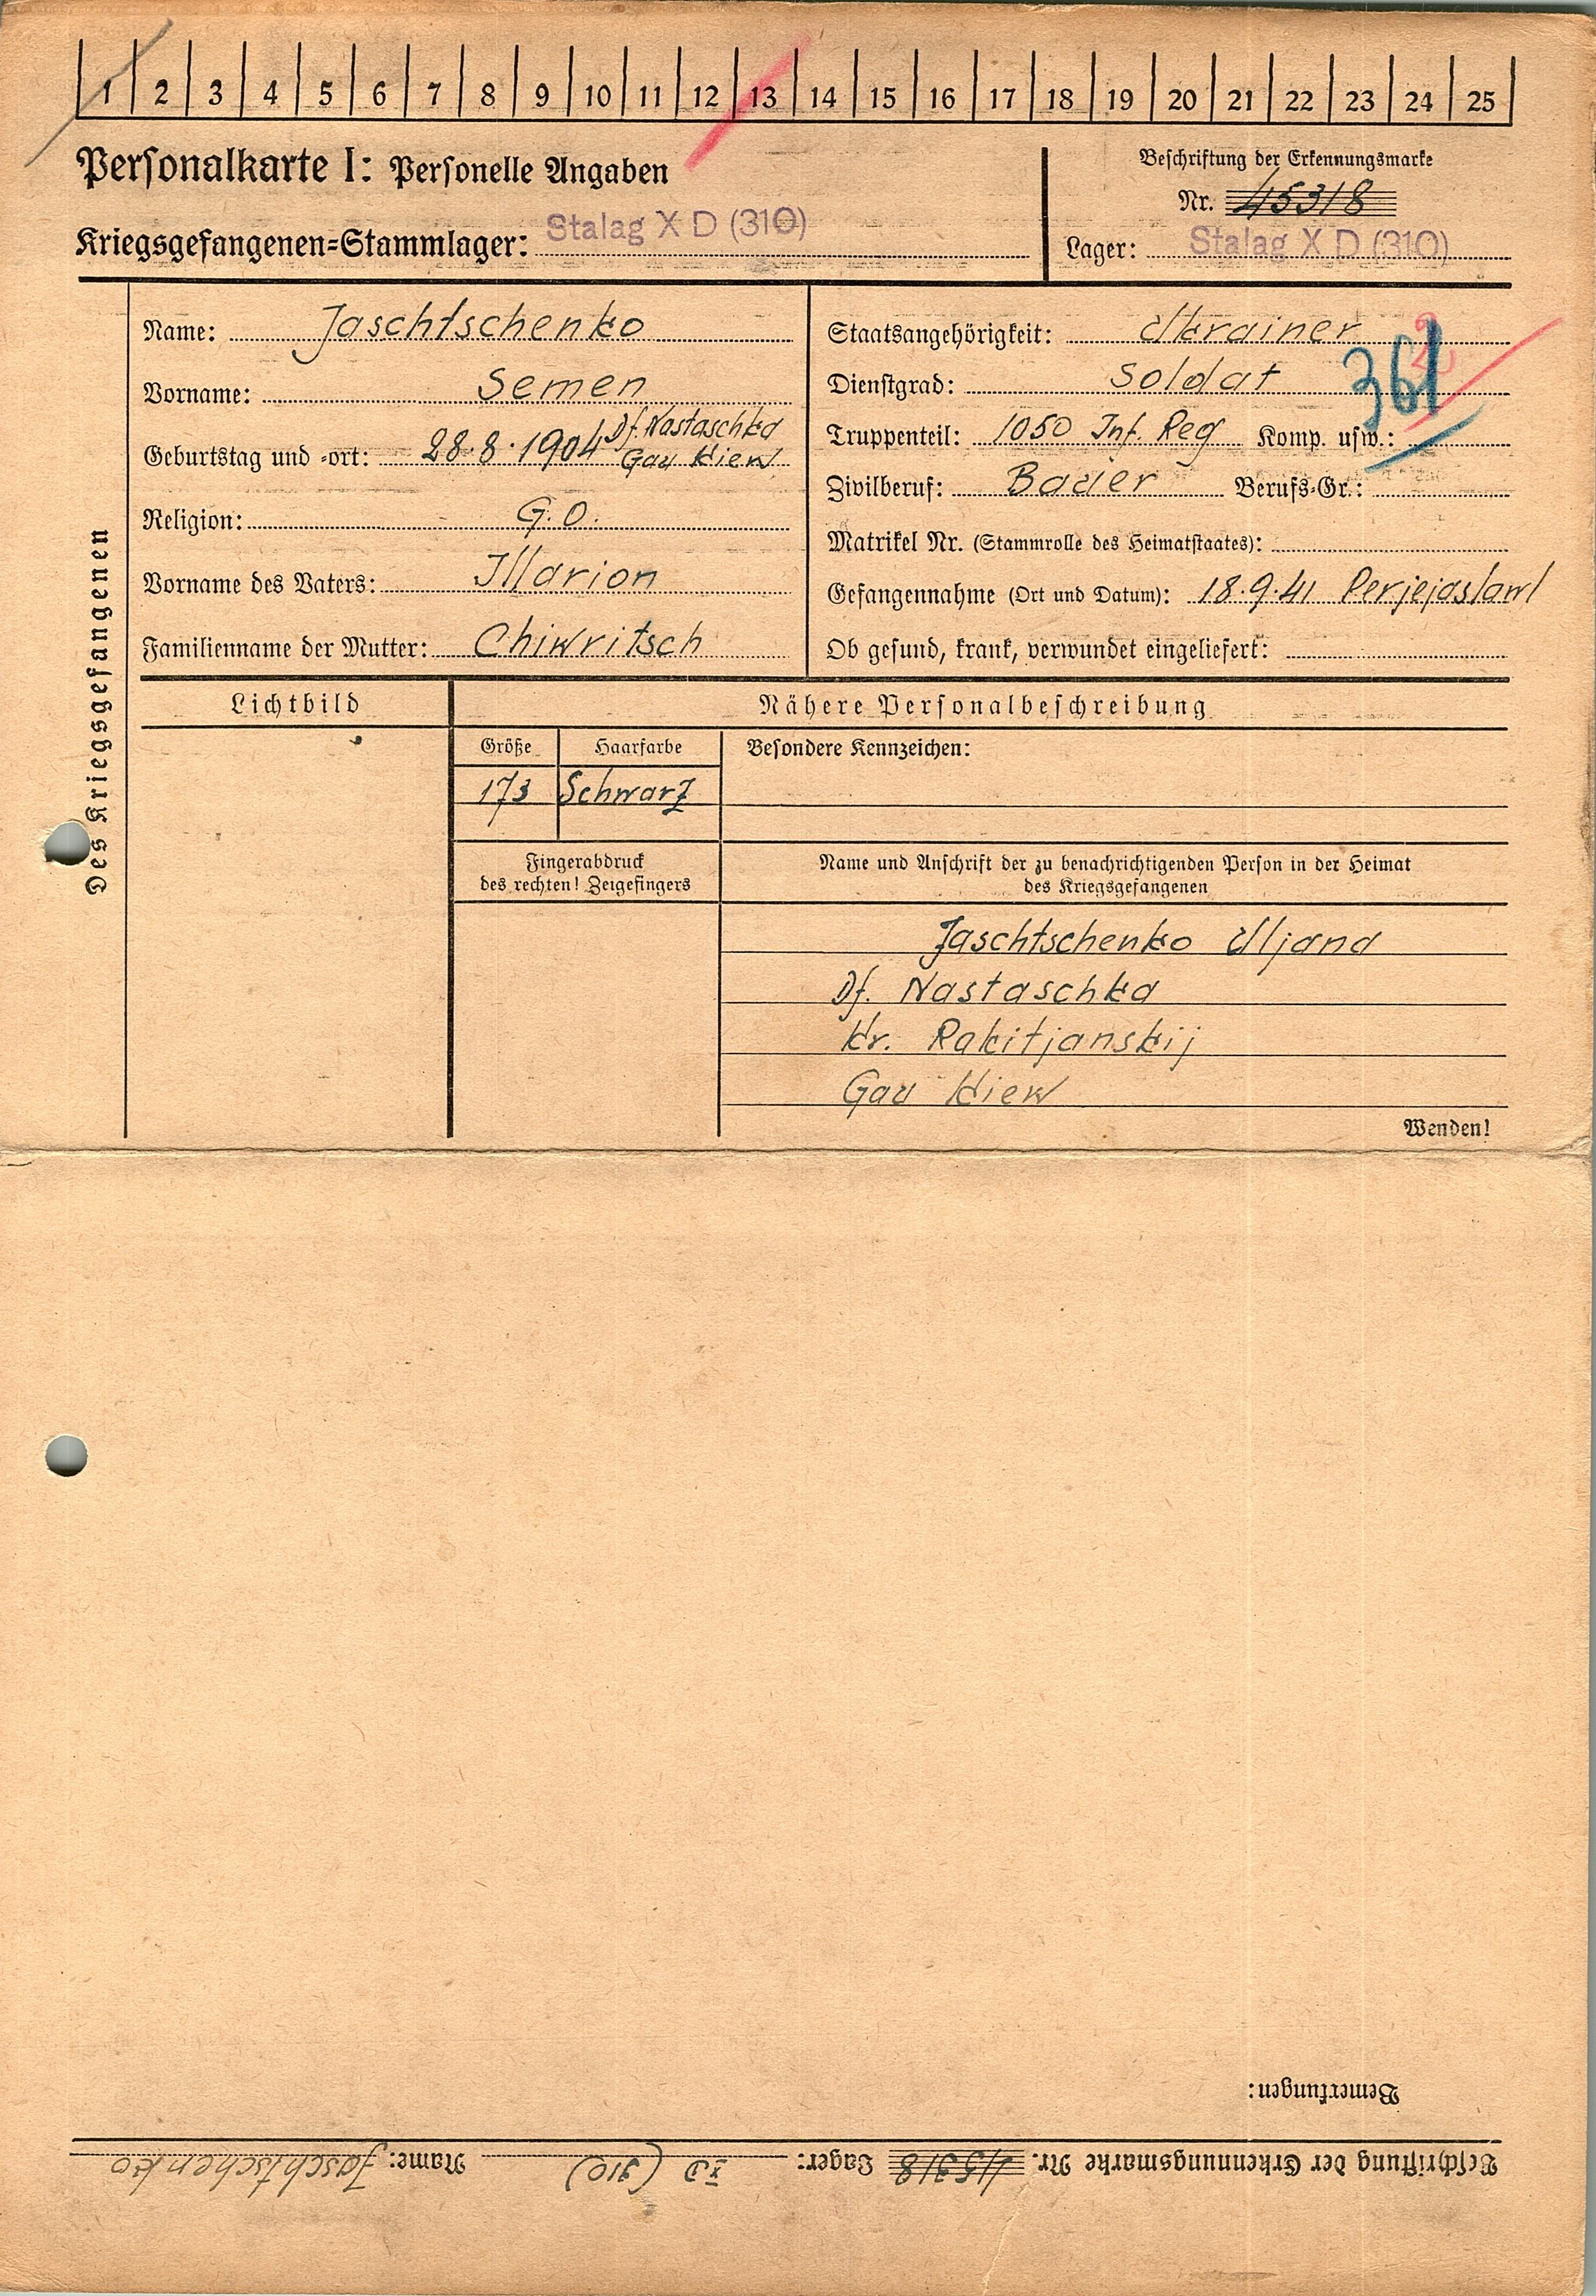 1 2 3 4 5 6 7 8 9 10 11 12 13 14 15 16 17 18 19 20 21 22 23 24 25
Personalkarte I: Personelle Angaben
Kriegsgefangenen=Stammlager: Stalag X D (310)
Beschriftung der Erkennungsmarke
Nr. 45318
Lager: Stalag X D (310)
Des Kriegsgefangenen
Name: Jaschtschenko
Vorname: Semen
Geburtstag und -ort: 28.8.1904 Df. Nastaschka
Gau Kiew
Religion: G.O.
Vorname des Vaters: Illarion
Familienname der Mutter: Chiwritsch
Staatsangehörigkeit: Ukrainer
Dienstgrad: Soldat
361
Truppenteil: 1050 Inf. Reg Komp. usw.:
Zivilberuf: Bauer Berufs-Gr.:
Matrikel Nr. (Stammrolle des Heimatstaates):
Gefangennahme (Ort und Datum): 18.9.41 Perjejaslawl
Ob gesund, krank, verwundet eingeliefert:
Lichtbild
Nähere Personalbeschreibung
Größe Haarfarbe Besondere Kennzeichen:
173 Schwarz
Fingerabdruck
des rechten! Zeigefingers
Name und Anschrift der zu benachrichtigenden Person in der Heimat
des Kriegsgefangenen
Jaschtschenko Uljana
Df. Nastaschka
Kr. Rakitjanskij
Gau Kiew
Wenden!
Bemerkungen:
Beschriftung der Erkennungsmarke Nr. 45318 Lager: XD (310) Name: Jaschtschenko